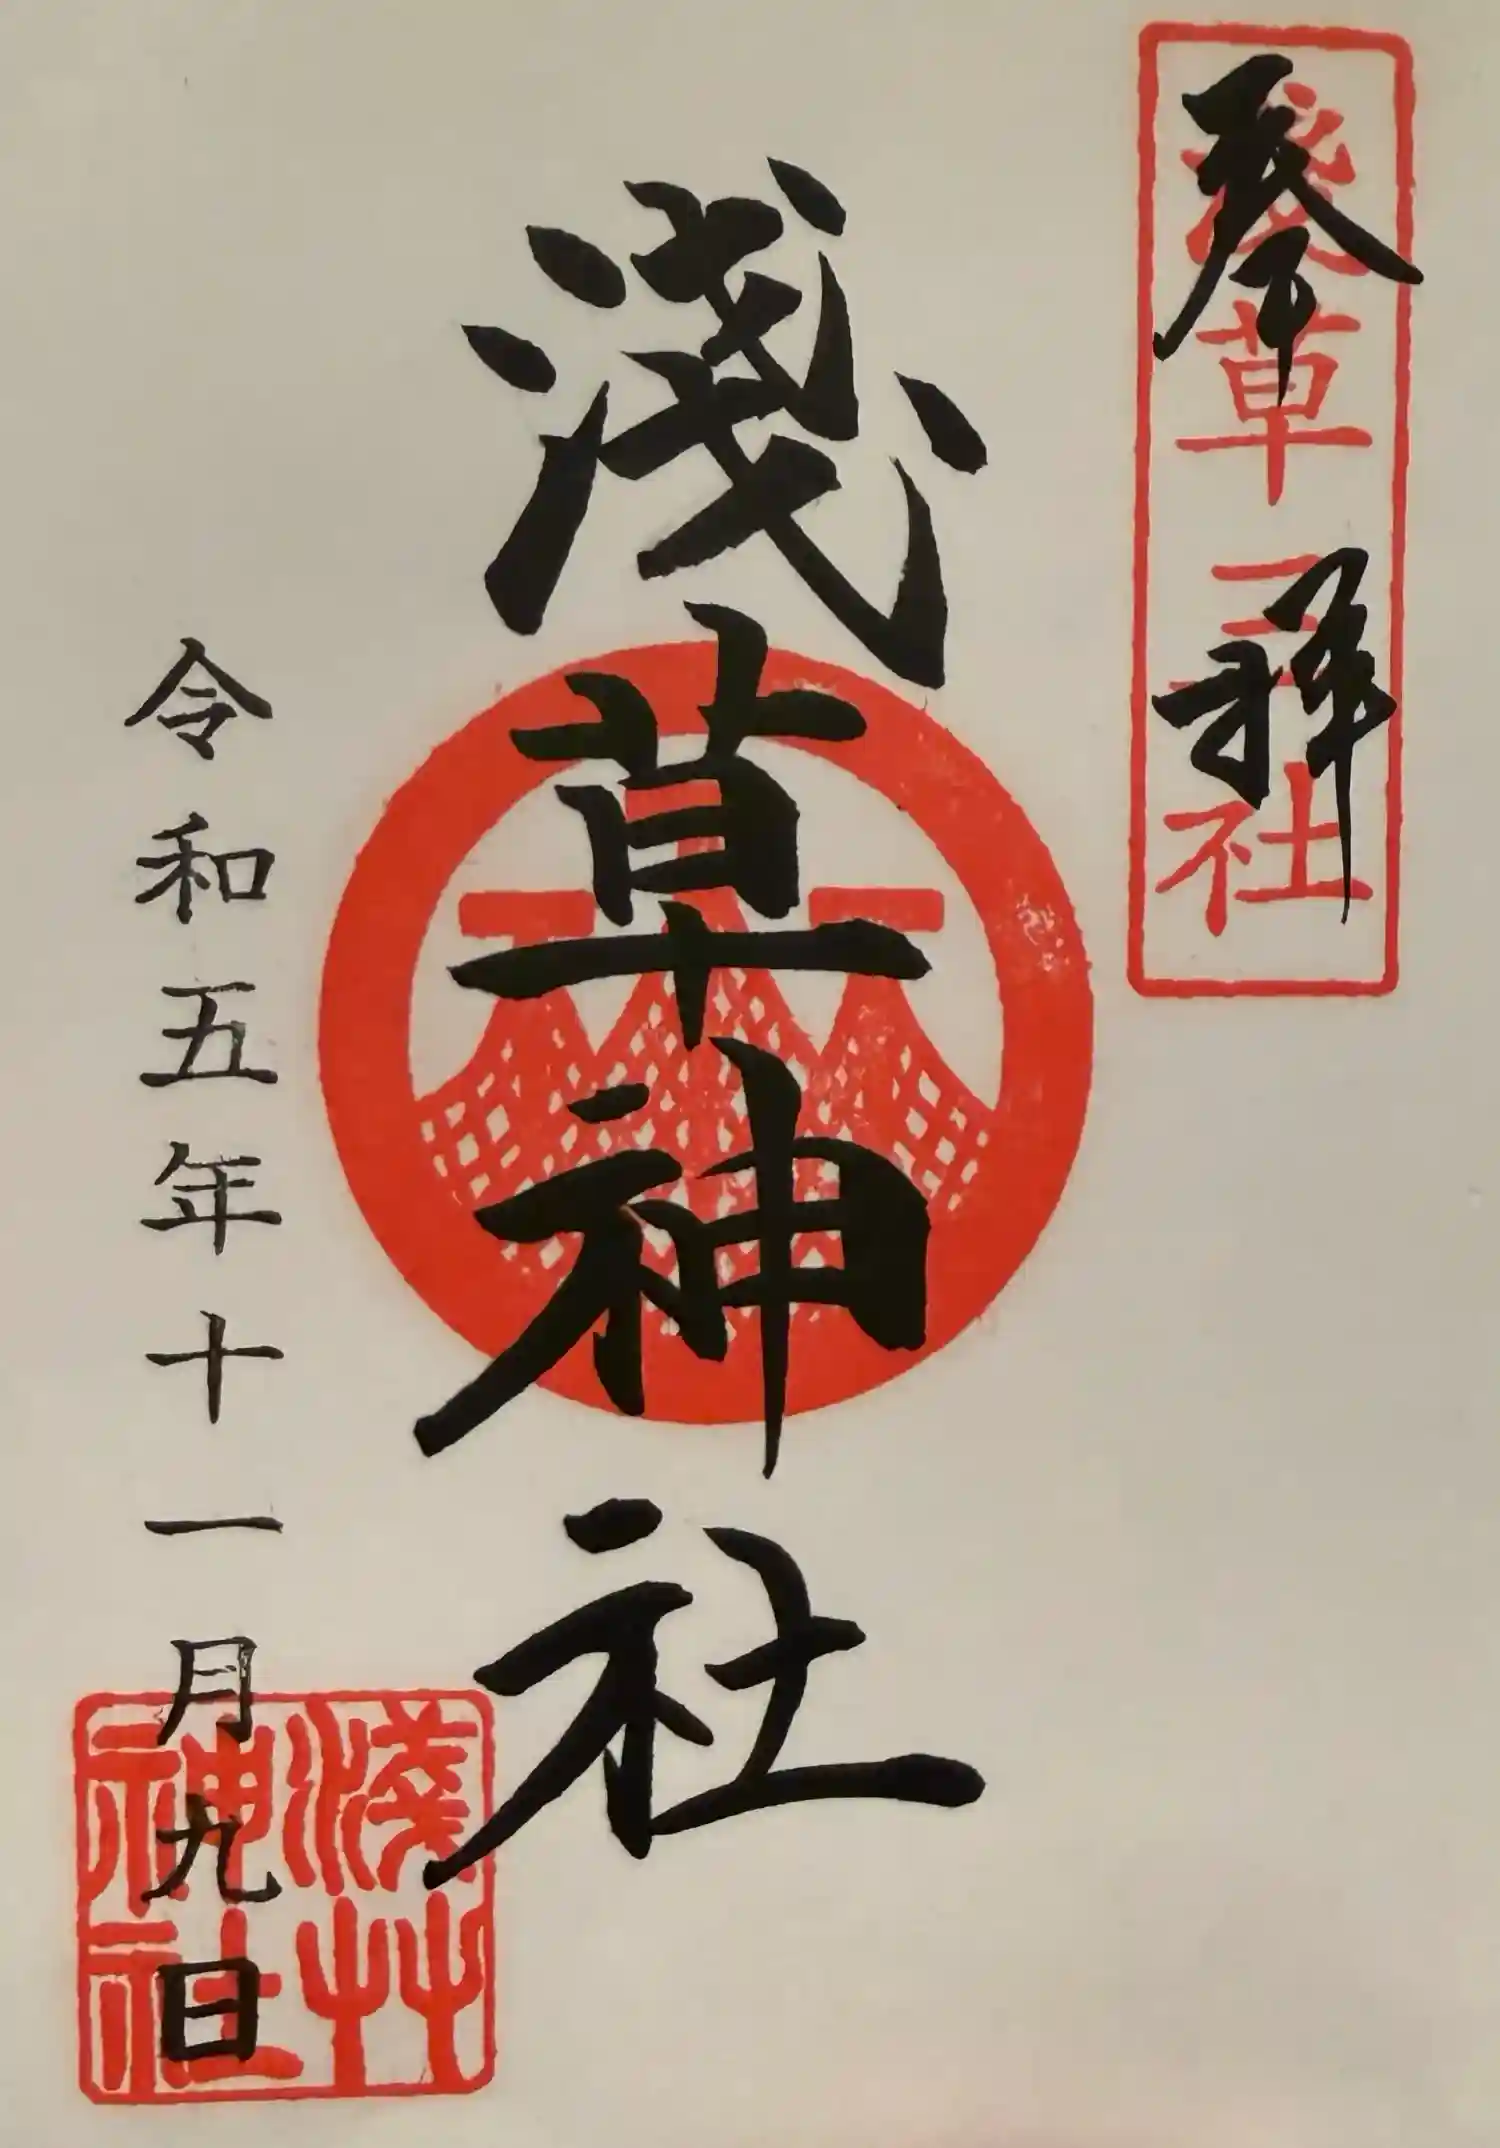 奉拝
淺草三社
淺草神社
令和五年十一月九日
淺艸
神社